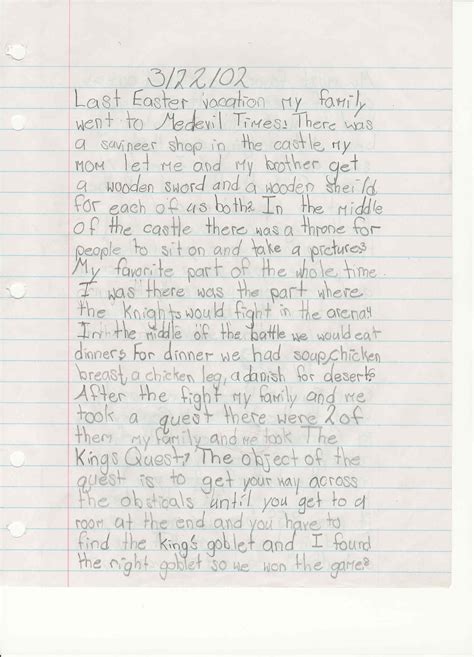 3/22/02
Last Easter vacation my family
went to Medevil Times. There was
a savineer shop in the castle, my
mom let me and my brother get
a wooden sword and a wooden sheild
for each of us both. In the middle
of the castle there was a throne for
people to sit on and take a pictures.
My favorite part of the whole time
I was there was the part where
the Knights would fight in the arena.
In the middle of the battle we would eat
dinner. For dinner we had soap, chicken
breast, a chicken leg, a danish for desert.
After the fight my family and me
took a quest there were 2 of
them my family and me took The
Kings Quest. The object of the
quest is to get your way across
the obsticals until you get to a
room at the end and you have to
find the king's goblet and I found
the right goblet so we won the game.